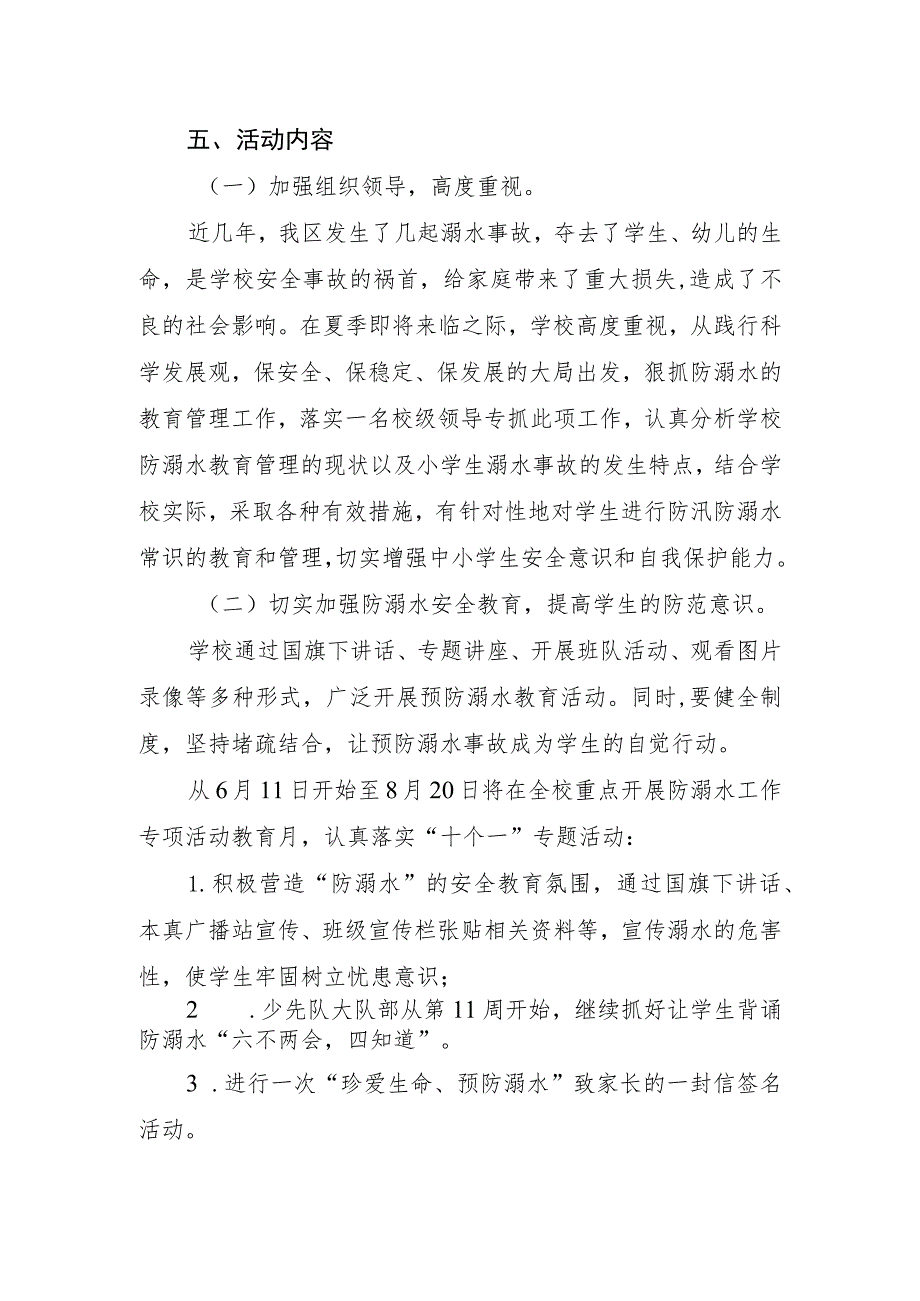 五、活动内容
（一）加强组织领导，高度重视。
近几年，我区发生了几起溺水事故，夺去了学生、幼儿的生
命，是学校安全事故的祸首，给家庭带来了重大损失,造成了不
良的社会影响。在夏季即将来临之际，学校高度重视，从践行科
学发展观，保安全、保稳定、保发展的大局出发，狠抓防溺水的
教育管理工作，落实一名校级领导专抓此项工作，认真分析学校
防溺水教育管理的现状以及小学生溺水事故的发生特点，结合学
校实际，采取各种有效措施，有针对性地对学生进行防汛防溺水
常识的教育和管理,切实增强中小学生安全意识和自我保护能力。
（二）切实加强防溺水安全教育，提高学生的防范意识。
学校通过国旗下讲话、专题讲座、开展班队活动、观看图片
录像等多种形式，广泛开展预防溺水教育活动。同时,要健全制
度，坚持堵疏结合，让预防溺水事故成为学生的自觉行动。
从6月11日开始至8月20日将在全校重点开展防溺水工作
专项活动教育月，认真落实“十个一”专题活动：
1.积极营造“防溺水”的安全教育氛围，通过国旗下讲话、
本真广播站宣传、班级宣传栏张贴相关资料等，宣传溺水的危害
性，使学生牢固树立忧患意识；
2 .少先队大队部从第11周开始，继续抓好让学生背诵
防溺水“六不两会，四知道”。
3 .进行一次“珍爱生命、预防溺水”致家长的一封信签名
活动。